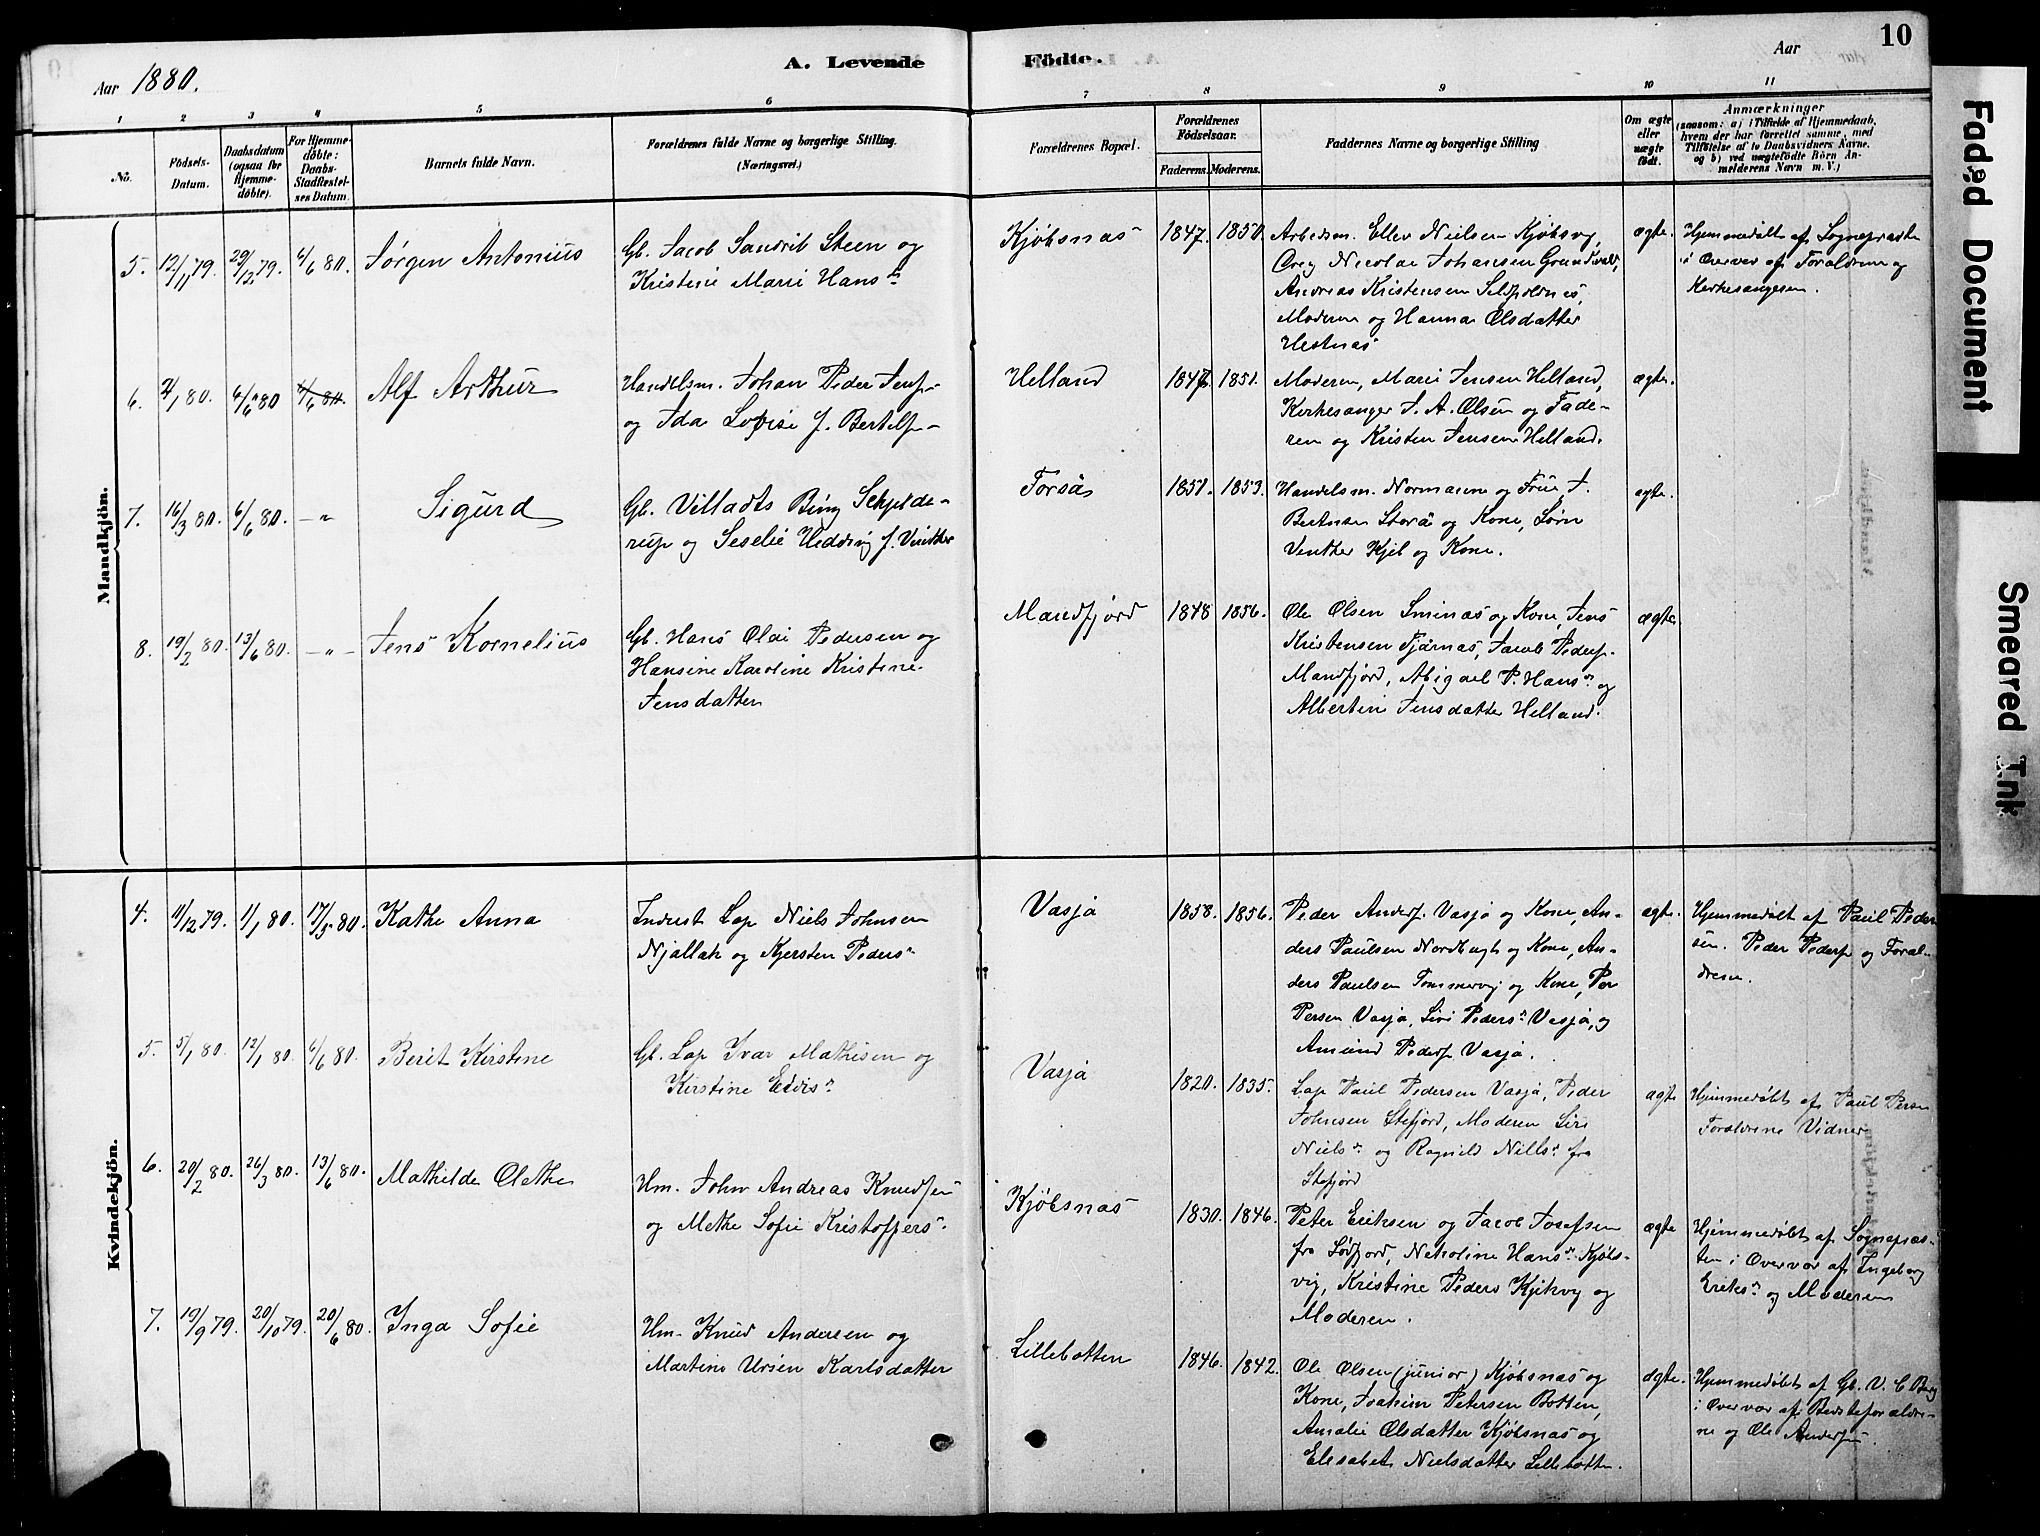 10
Aar 1880.
A. Levende
Födte.
Aar
1 2 3 4 5 6 7 8 9 10 11
No.
Födsels-
Datum.
Daabsdatum
(ogsaa for
Hjemme-
døbte).
For Hjemme-
døbte:
Daabs-
Stadfæstel-
ses Datum.
Barnets fulde Navn.
Forældrenes fulde Navne og borgerlige Stilling.
(Næringsvei.)
Forældrenes Bopæl.
Forældrenes
Födselsaar.
Faderens. Moderens.
Faddernes Navne og borgerlige Stilling
Om ægte
eller
uægte
født.
Anmærkninger
(saasom: a) i Tilfælde af Hjemmedaab,
hvem der har forrettet samme, med
Tilføielse af to Daabsvidners Navne.
og b) ved uægtefödte Börn An-
melderens Navn m. V.)
Mandkjön.
5. 12/11 79. 29/12 79. 6/6 80. Jørgen Antonius
Gb. Jacob Sandrib Steen og
Kristine Marie Hansdr
Kjøbsnas 1847. 1850.
Arbedsm. Ellev Nielsen Kjøbsvig,
Nicolai Johansen Grundvald,
Andreas Kristensen
Moderen og Hanna Olsdatter
Hestnas
ægte.
Hjemmedøbt af Sognepræsten
i Overvær af Forældrene og
Kirkesangeren.
6. 4/1 80. 6/6 80 6/6 80. Alf Arthur
Handelsm. Johan Peder Jensen
og Ida Lovise f. Bertelsen
Helland 1847. 1851.
Moderen, Marie Jensen Helland,
Kirkesanger J. A. Olsen og Fade-
ren og Kristen Jensen Helland.
ægte.
7. 16/3 80. 6/6 80. -"- Sigurd
Gb. Villadts Bing Schjelde-
rup og Seselie Hedvig f. Vinther
Forså 1851. 1853.
Handelsm. Normann og Frue, J.
Berntsen Storå og Kone, Sørn
Venther Kjel og Kone.
ægte.
8. 19/2 80. 13/6 80. -"- Jens Kornelius
Gb. Hans Olai Pedersen og
Hansine Karoline Kristine
Jensdatter
Mandfjord 1848 1856.
Ole Olsen Sminas og Kone, Jens
Kristensen Tjårnas, Jacob Pedersen
Mandfjord, Abigael P. Hansdr og
Albertine Jensdatter Helland.
ægte.
Kvindekjön.
4. 11/12 79. 1/1 80. 17/5 80. Kathe Anna
Inderst Lap Niels Johnsen
Njallah og Kjersten Pedersdr
Vasja 1858. 1856.
Peder Andersen Vasja og Kone, An-
ders Paulsen Nordbugt og Kone, An-
ders Paulsen Tommervig og Kone, Per
Persen Vasja, Siri Pedersdr Vasja, og
Amund Pedersen Vasja.
ægte.
Hjemmedøbt af Paul Peder-
sen. Peder Pedersen og Foræl-
drene.
5. 5/1 80. 12/1 80. 6/6 80. Berit Kirstine
Gb. Lap Ivar Mathisen og
Kirstine
Vasja 1820. 1835.
Lap Paul Pedersen Vasja, Peder
Johnsen Stefjord, Moderen Siri
Nielsdr og Ragnild Nilsdr fra
Stefjord
ægte
Hjemmedøbt af Paul Persen
Forældrene Vidner
6. 20/2 80. 26/3 80. 13/6 80. Mathilde Olethe
Hm. John Andreas Knudsen
og Methe Sofie Kristoffersdr
Kjøbsnas 1830. 1846.
Peter Eriksen og Jacob Josefsen
fra Lødfjord, Nekoline Hansdr Kjøbs-
vig, Kristine Peders Kjikvig og
Moderen.
ægte
Hjemmedøbt af Sognepræs-
ten i Overvær af Ingeborg
Eriksdr og Moderen
7. 19/9 79. 20/10 79. 20/6 80. Inga Sofie
Hm. Knud Andersen og
Martine Ursen Karlsdatter
Lillebotten 1846. 1842.
Ole Olsen (junior) Kjøbsnas og
Kone, Joakim Petersen Botten,
Amalie Olsdatter Kjøbsnas og
Elisabet Nielsdatter Lillebotten.
ægte.
Hjemmedøbt af Gb. V. C. Berg
i Overvær af Bedsteforældre-
ne og Ole Andersen.
Faded Document
Smeared Ink